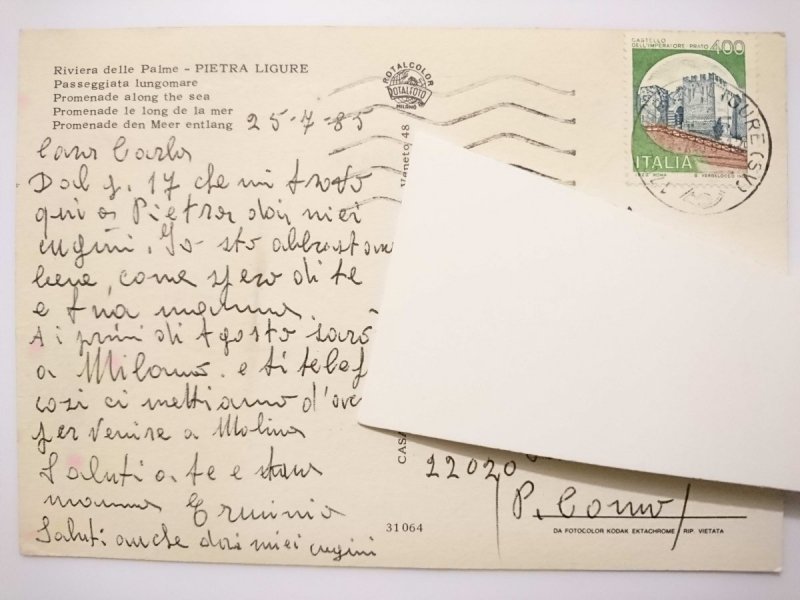 Riviera delle Palme - PIETRA LIGURE
Passeggiata lungomare
Promenade along the sea
Promenade le long de la mer
Promenade den Meer entlang
25-7-85
Cara Carla
Dal g. 17 che mi trovo
qui a Pietra dai miei
cugini. Io sto abbastanza
bene, come spero di te
e tua mamma.
Ai primi di Agosto sarò
a Milano. e ti telef
così ci mettiamo d'acc
per venire a Molina
Saluti a te e
mamma Erminia
Saluti anche dai miei cugini
ROTALCOLOR
ROTALFOTO
MILANO
Veneto, 48
CASA
31064
CASTELLO
DELL'IMPERATORE PRATO
400
ITALIA
IGURE (SV)
22020
P. Como
DA FOTOCOLOR KODAK EKTACHROME / RIP. VIETATA